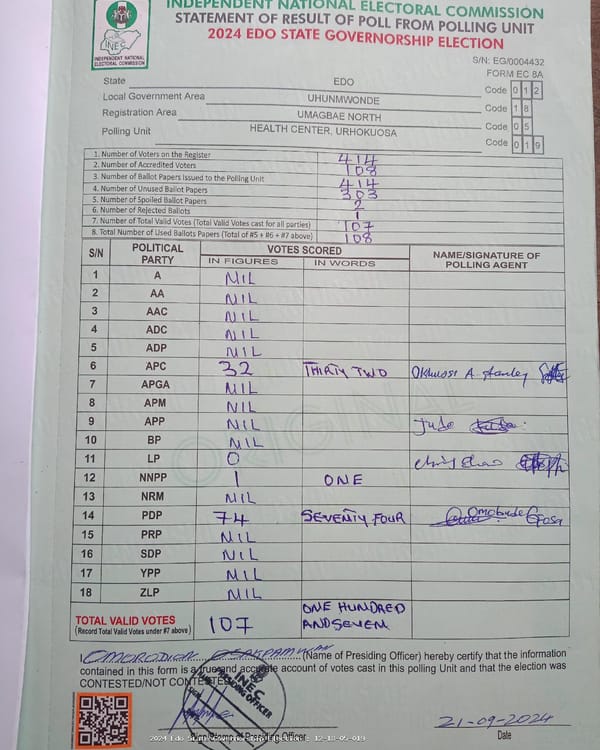 INDEPENDENT NATIONAL ELECTORAL COMMISSION
STATEMENT OF RESULT OF POLL FROM POLLING UNIT
2024 EDO STATE GOVERNORSHIP ELECTION
INEC
INDEPENDENT NATIONAL
ELECTORAL COMMISSION
S/N: EG/0004432
FORM EC 8A
State EDO Code 0 1 2
Local Government Area UHUNMWONDE Code 1 8
Registration Area UMAGBAE NORTH Code 0 5
Polling Unit HEALTH CENTER, URHOKUOSA Code 0 1 9
1. Number of Voters on the Register 414
2. Number of Accredited Voters 108
3. Number of Ballot Papers Issued to the Polling Unit 414
4. Number of Unused Ballot Papers 303
5. Number of Spoiled Ballot Papers 2
6. Number of Rejected Ballots 1
7. Number of Total Valid Votes (Total Valid Votes cast for all parties) 107
8. Total Number of Used Ballots Papers (Total of #5 + #6 + #7 above) 108
S/N POLITICAL PARTY VOTES SCORED NAME/SIGNATURE OF POLLING AGENT
IN FIGURES IN WORDS
1 A NIL
2 AA NIL
3 AAC NIL
4 ADC NIL
5 ADP NIL
6 APC 32 THIRTY TWO A Stanley
7 APGA NIL
8 APM NIL
9 APP NIL Jude
10 BP NIL
11 LP 0
12 NNPP 1 ONE
13 NRM NIL
14 PDP 74 SEVENTY FOUR Omobude Efosa
15 PRP NIL
16 SDP NIL
17 YPP NIL
18 ZLP NIL
TOTAL VALID VOTES 107 ONE HUNDRED AND SEVEN
(Record Total Valid Votes under #7 above)
ORIGINAL
I (Name of Presiding Officer) hereby certify that the information
contained in this form is a true and accurate account of votes cast in this polling Unit and that the election was
CONTESTED/NOT CONTESTED
INEC
PRESIDING OFFICER
21-09-2024
Date